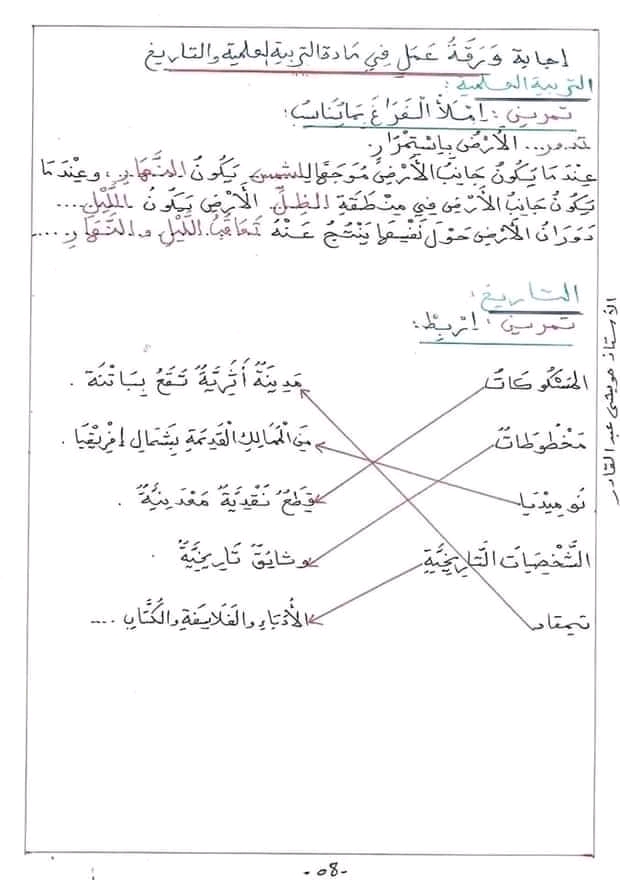 إجابة وَرَقَةُ عَمَلٍ فِي مَادة التربية العلمية والتاريخ
التربية العلمية :
تمرين : اِمْلَأْ الْفَرَاغَ بِمَا يُنَاسِبُ :
تدور... الْأَرْضُ بِاسْتِمْرَارٍ.
عِنْدَمَا يَكُونُ جَانِبُ الْأَرْضِ مُوَجَّهًا للشمس يَكُونُ النَّهَار ، وعِنْدَمَا
يَكُونُ جَانِبُ الْأَرْضِ فِي مِنْطَقَةِ الظِّلِّ. الْأَرْضِ يَكُونُ اللَّيْل....
دَوَرَانُ الْأَرْضِ حَوْلَ نَفْسِهَا يَنْتَجُ عَنْهُ تَعَاقُبُ اللَّيْلِ وَالنَّهَارِ....
التاريخ :
تمرين : اِرْبِطْ :
المَسْكُوكَاتُ
مَدِينَةٌ أَثَرِيَّةٌ تَقَعُ بِبَاتْنَة .
مَخْطُوطَاتٌ
مِنَ الْمَمَالِكِ الْقَدِيمَةِ بِشَمَالِ إفْرِيقْيَا .
نُومِيدْيَا
قِطَعٌ نَقْدِيَّةٌ مَعْدِنِيَّةٌ .
الشَّخْصِيَاتُ التَّارِيخِيَّةِ
وثَائِقٌ تَارِيخِيَّةٌ .
تيمقاد
الْأُدَبَاءِ والفَلَاسِفَةِ والكُتَّابِ ....
الأستاذ مويشي عبد القادر
- 08 -